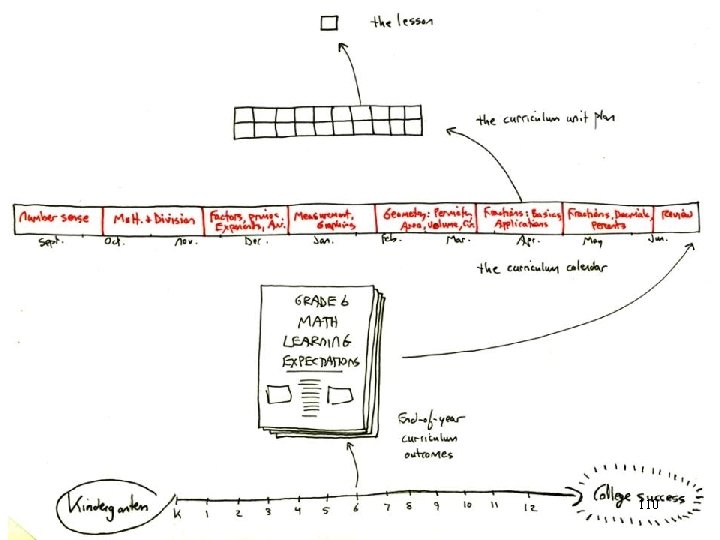 the lesson
the curriculum unit plan
Number sense
Mult. & Division
Factors, primes,
Exponents, Av.
Measurement,
Graphing
Geometry: Perimeter,
Area, Volume, Cir.
Fractions: Basics,
Applications
Fractions, Decimals,
Percents
Review
Sept. Oct. Nov. Dec. Jan. Feb. Mar. Apr. May Jun.
the curriculum calendar
GRADE 6
MATH
LEARNING
EXPECTATIONS
End-of-year
curriculum
outcomes
Kindergarten
K 1 2 3 4 5 6 7 8 9 10 11 12
College success
110